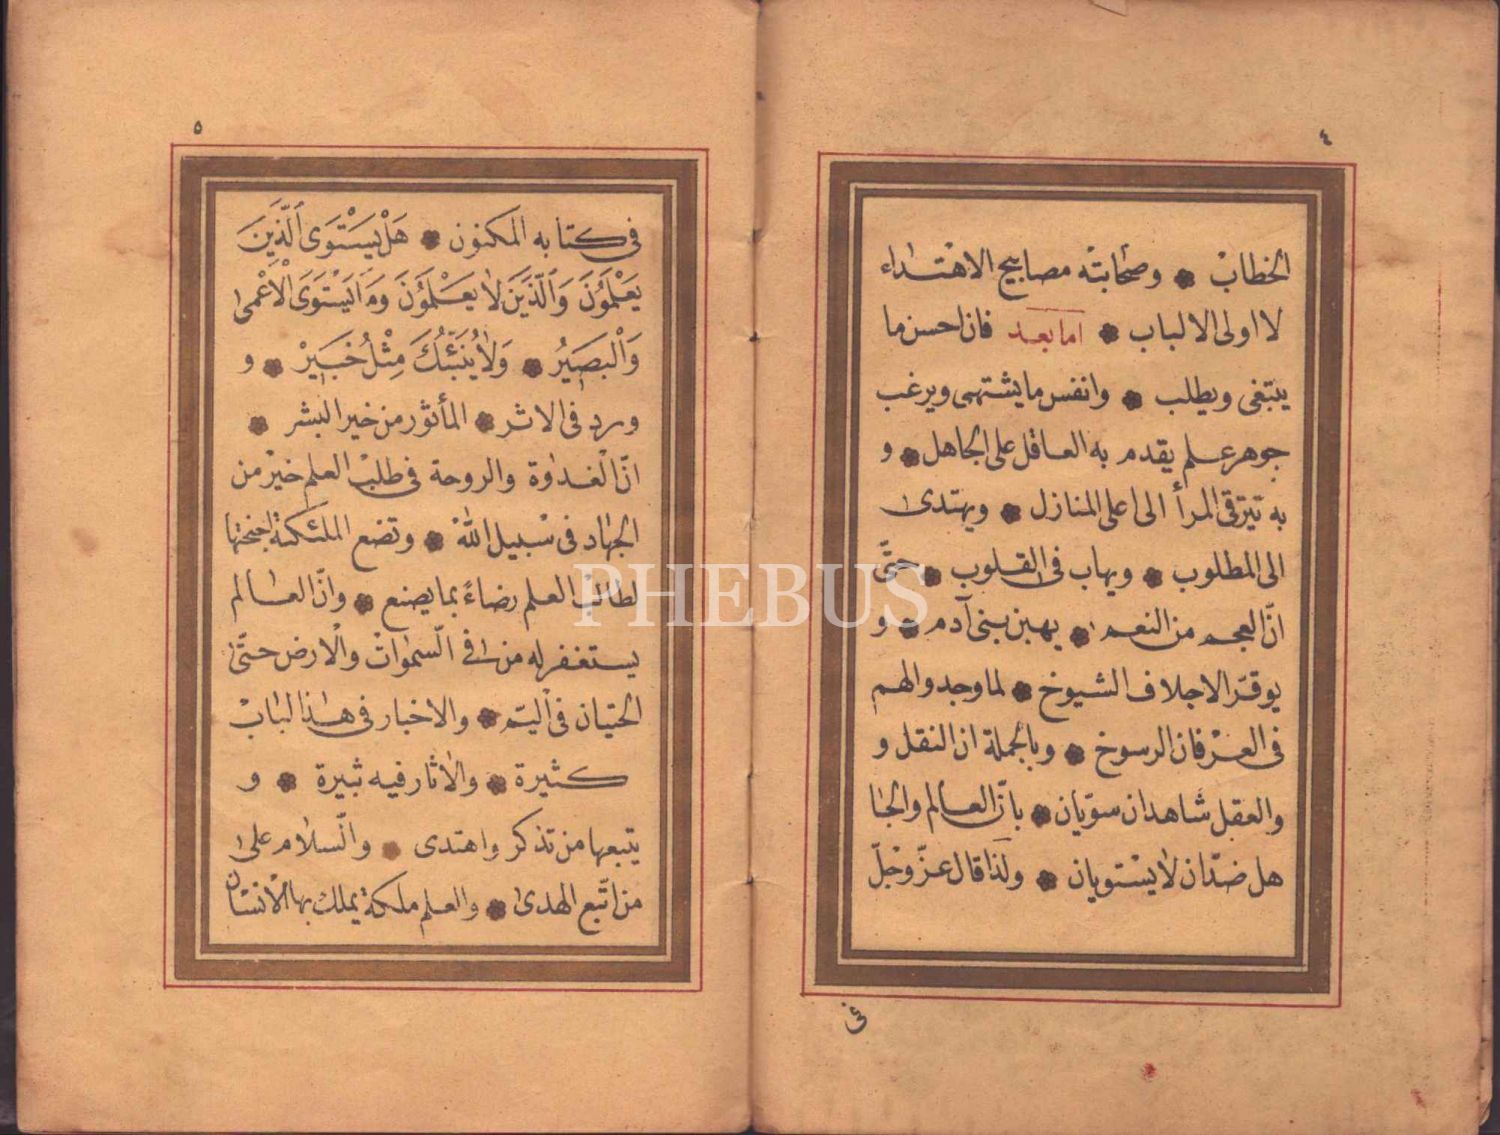 ٤
الخطاب ❁ وصحابته مصابيح الاهتداء
لا اولى الالباب ❁ اما بعد فان احسن ما
يبتغى ويطلب ❁ وانفس ما يشتهى ويرغب
جوهر علم يقدم به العاقل على الجاهل ❁ و
به تيترقى المرأ الى اعلى المنازل ❁ ويهتدى
الى المطلوب ❁ ويهاب فى القلوب ❁ حتّى
انّ العجم من النعم ❁ يهبن بنى آدم ❁ و
يوقّر الاجلاف الشيوخ ❁ لما وجدوا لهم
فى العرْفان الرسوخ ❁ وبالجملة ان النقل و
والعقل شاهدان سوّيان ❁ بانّ العالم والجا
هل ضدّان لا يسْتويان ❁ ولذا قال عزّ وجلّ
فى
٥
فى كتابه المكنون ❁ هَلْ يَسْتَوِى ٱلَّذِينَ
يَعْلَمُونَ وَٱلَّذِينَ لَا يَعْلَمُونَ وَمَا يَسْتَوِى الْاَعْمٰى
وَالْبَصِيرُ ❁ وَلَا يُنَبِّئُكَ مِثْلُ خَبِيرْ ❁ و
ورد فى الاثر ❁ المأثور من خير البشر ❁
انّ الْغدٰوة والروحة فى طلب العلم خيرْ من
الجهٰاد فى سْبيل اللّٰهْ ❁ وتضع الملئكة اجنحتها
لطالب العلم رضاءً بما يصنع ❁ وانّ العالم
يستغفر له من فى السّمٰوات والْارض حتّى
الحيتان فى اليّم ❁ والاخبار فى هٰذا البٰابْ
كثيرة ❁ والاثار فيه ثبيرة ❁ و
يتبعها من تذكر واهتدى ❁ والسّلام على
من اتّبع الهدى ❁ والعلم ملكة يملك بها الْانسٰان
PHEBUS